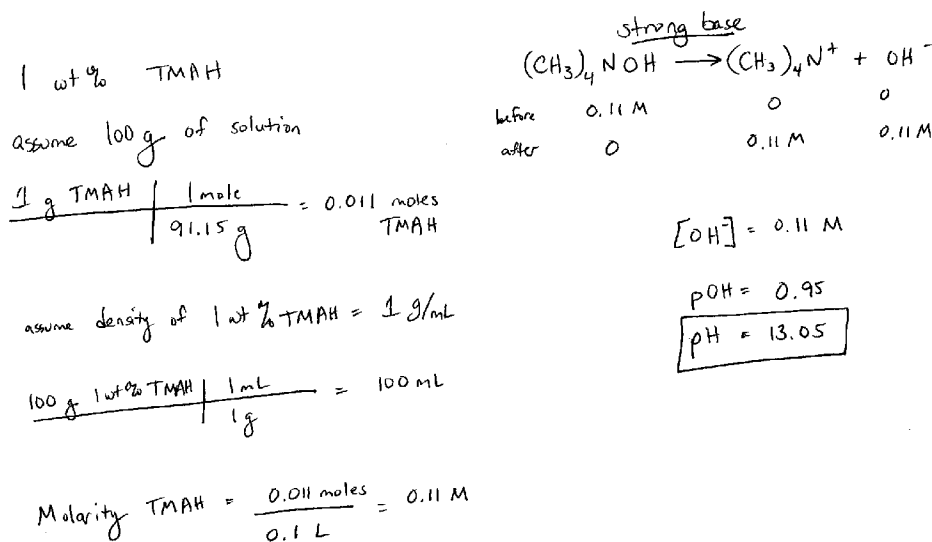 1 wt % TMAH
assume 100 g of solution
1 g TMAH | 1 mole = 0.011 moles
91.15 g TMAH
assume density of 1 wt % TMAH = 1 g/mL
100 g 1 wt % TMAH | 1 mL = 100 mL
1 g
Molarity TMAH = 0.011 moles = 0.11 M
0.1 L
strong base
(CH₃)₄NOH → (CH₃)₄N⁺ + OH⁻
before 0.11 M 0 0
after 0 0.11 M 0.11 M
[OH⁻] = 0.11 M
pOH = 0.95
pH = 13.05